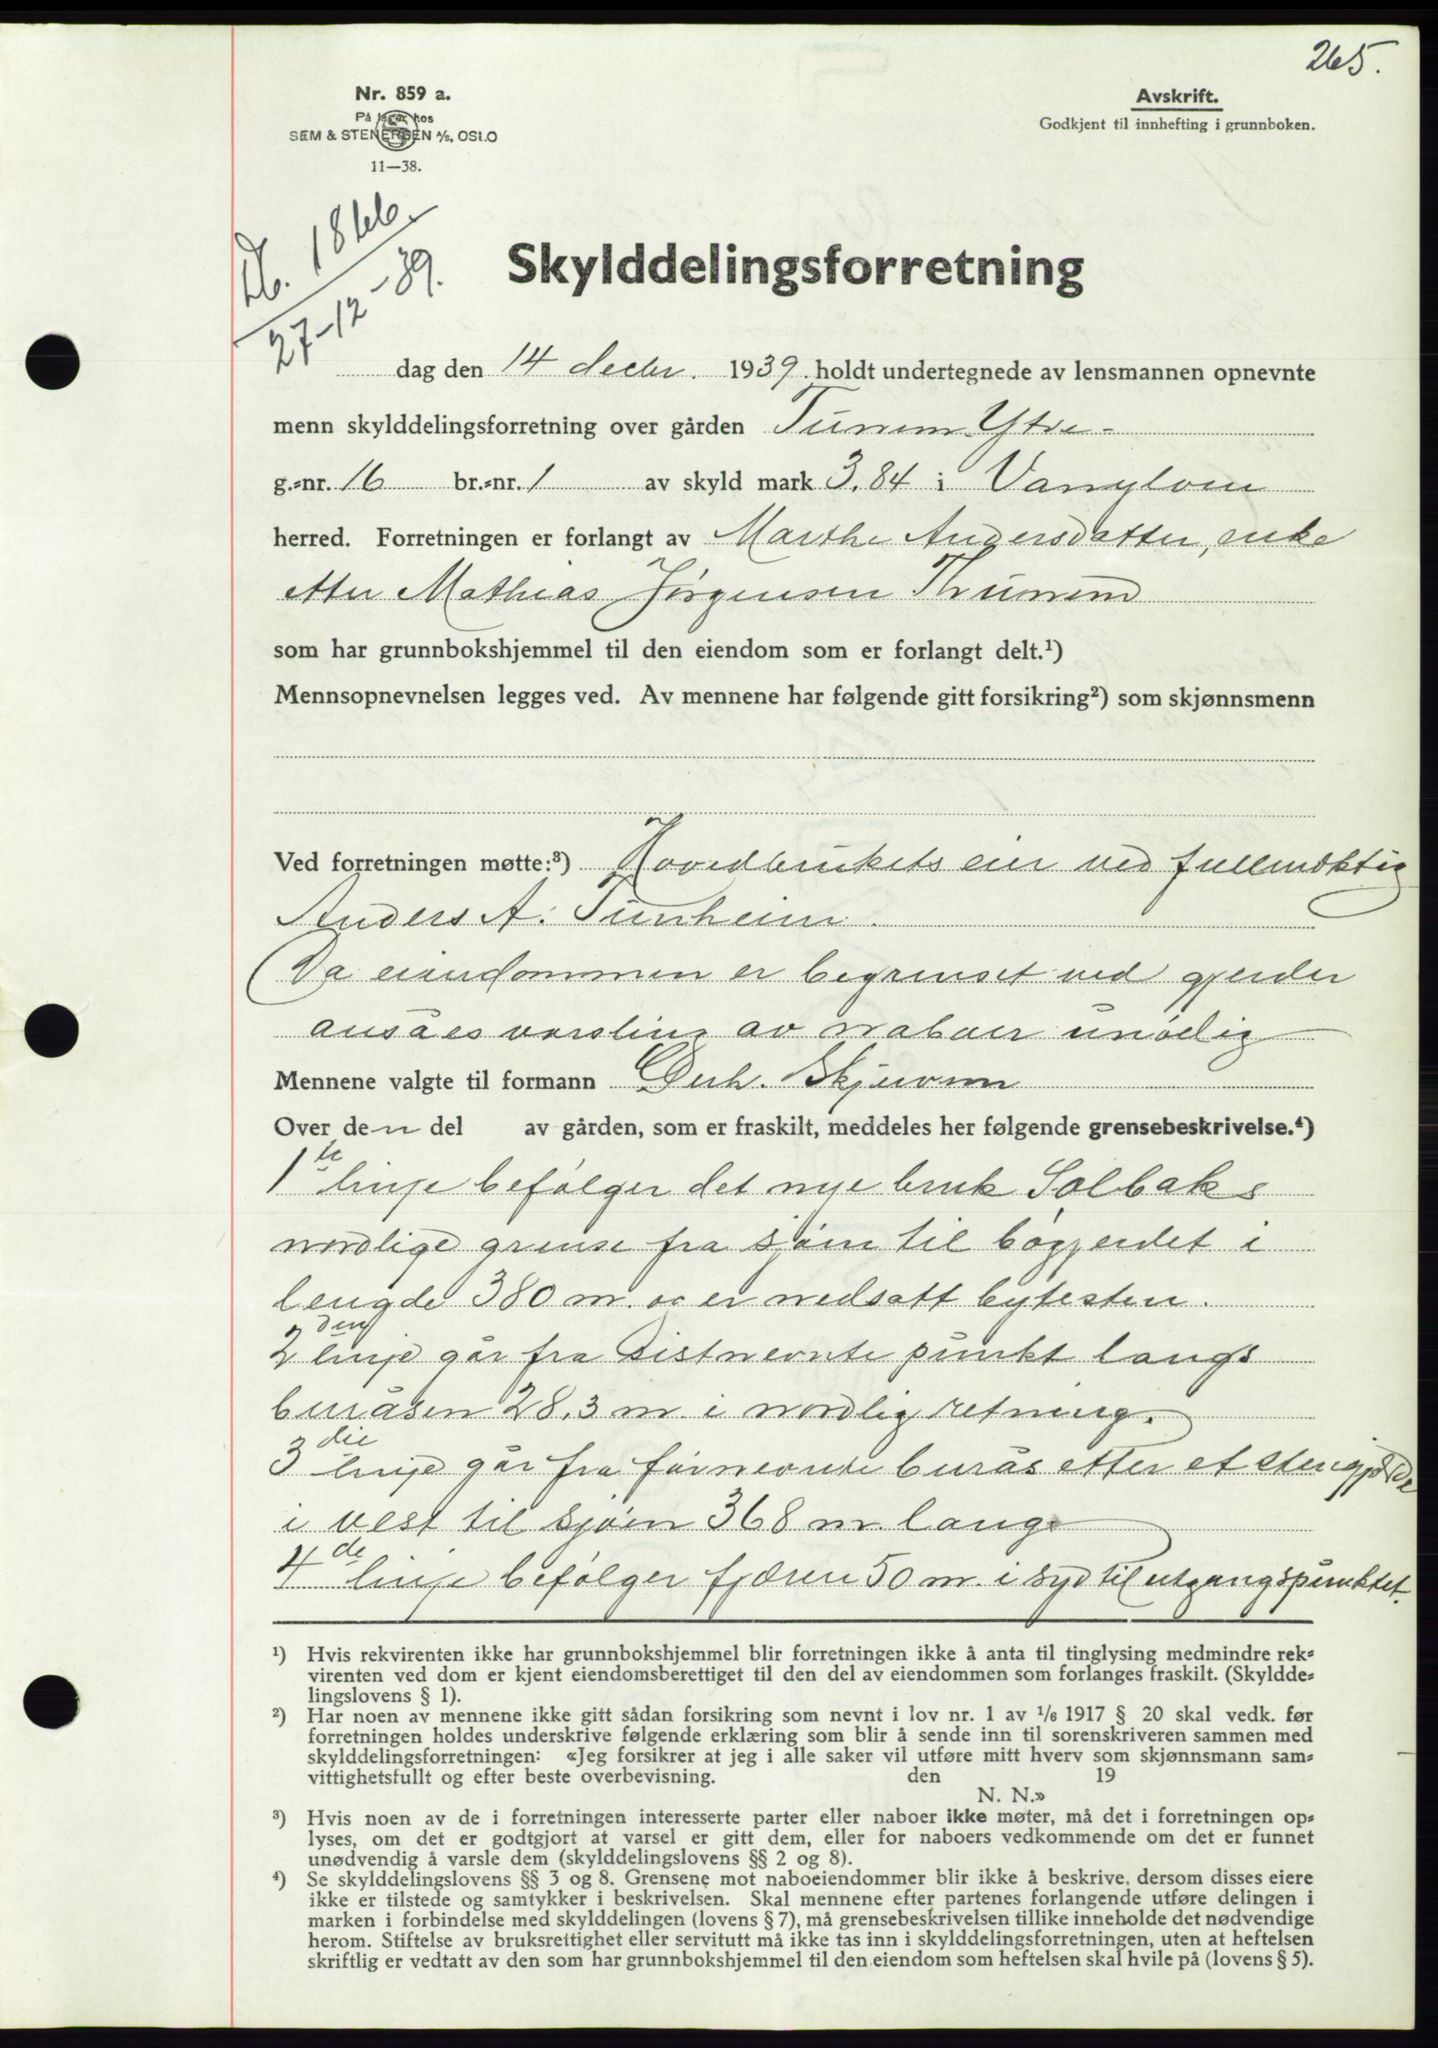 265.
Nr. 859 a.
På lager hos
SEM & STENERSEN A/S, OSLO
11—38.
Avskrift.
Godkjent til innhefting i grunnboken.
Db. 1866.
27-12-39.
Skylddelingsforretning
dag den 14 decbr. 1939. holdt undertegnede av lensmannen opnevnte
menn skylddelingsforretning over gården Tunem Ytre-
g.-nr. 16 br.-nr. 1 av skyld mark 3.84 i Vanylven
herred. Forretningen er forlangt av Marthe Andersdatter, enke
etter Mathias Jørgensen Thunem
som har grunnbokshjemmel til den eiendom som er forlangt delt.¹)
Mennsopnevnelsen legges ved. Av mennene har følgende gitt forsikring²) som skjønnsmenn
Ved forretningen møtte:³) Hovedbrukets eier ved fullmektig
Anders A. Tunheim.
Da eiendommen er begrenset ved gjerder
ansåes varsling av naboer unødig
Mennene valgte til formann Skjerven
Over den del av gården, som er fraskilt, meddeles her følgende grensebeskrivelse.⁴)
1te linje befølger det nye bruk Solbaks
nordlige grense fra sjøen til bøgjerdet i
lengde 380 m. og er nedsatt bytesten.
2den linje går fra sistnevnte punkt langs
buråsen 28,3 m. i nordlig retning.
3die linje går fra førnevnte burås etter et stengjerde
i vest til sjøen 368 m. lang
4de linje befølger fjæren 50 m. i syd til utgangspunktet.
¹) Hvis rekvirenten ikke har grunnbokshjemmel blir forretningen ikke å anta til tinglysing medmindre rek-
virenten ved dom er kjent eiendomsberettiget til den del av eiendommen som forlanges fraskilt. (Skyldde-
lingslovens § 1).
²) Har noen av mennene ikke gitt sådan forsikring som nevnt i lov nr. 1 av 1/6 1917 § 20 skal vedk. før
forretningen holdes underskrive følgende erklæring som blir å sende inn til sorenskriveren sammen med
skylddelingsforretningen: «Jeg forsikrer at jeg i alle saker vil utføre mitt hverv som skjønnsmann sam-
vittighetsfullt og efter beste overbevisning. den 19
N. N.»
³) Hvis noen av de i forretningen interesserte parter eller naboer ikke møter, må det i forretningen op-
lyses, om det er godtgjort at varsel er gitt dem, eller for naboers vedkommende om det er funnet
unødvendig å varsle dem (skylddelingslovens §§ 2 og 8).
⁴) Se skylddelingslovens §§ 3 og 8. Grensene mot naboeiendommer blir ikke å beskrive, dersom disses eiere
ikke er tilstede og samtykker i beskrivelsen. Skal mennene efter partenes forlangende utføre delingen i
marken i forbindelse med skylddelingen (lovens § 7), må grensebeskrivelsen tillike inneholde det nødvendige
herom. Stiftelse av bruksrettighet eller servitutt må ikke tas inn i skylddelingsforretningen, uten at heftelsen
skriftlig er vedtatt av den som har grunnbokshjemmel til den eiendom som heftelsen skal hvile på (lovens § 5).